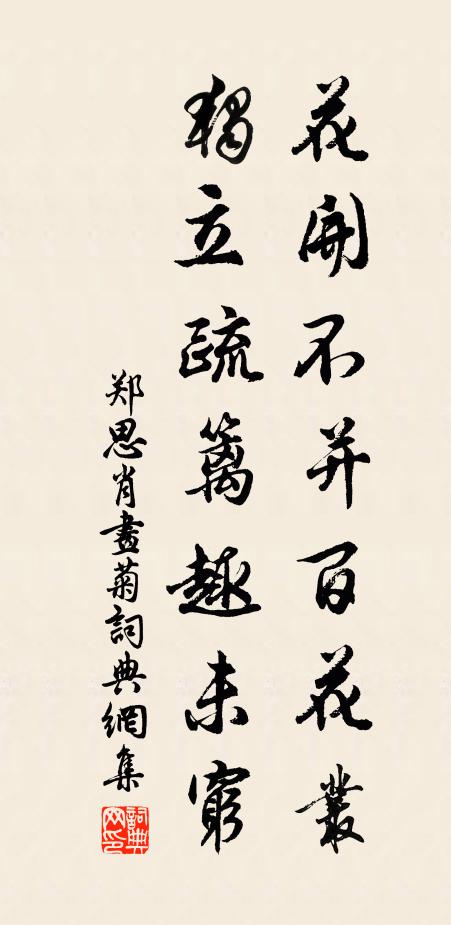 花開不并百花叢
獨立疏籬趣未窮
郑思肖畫菊詞典網集
詞典網印